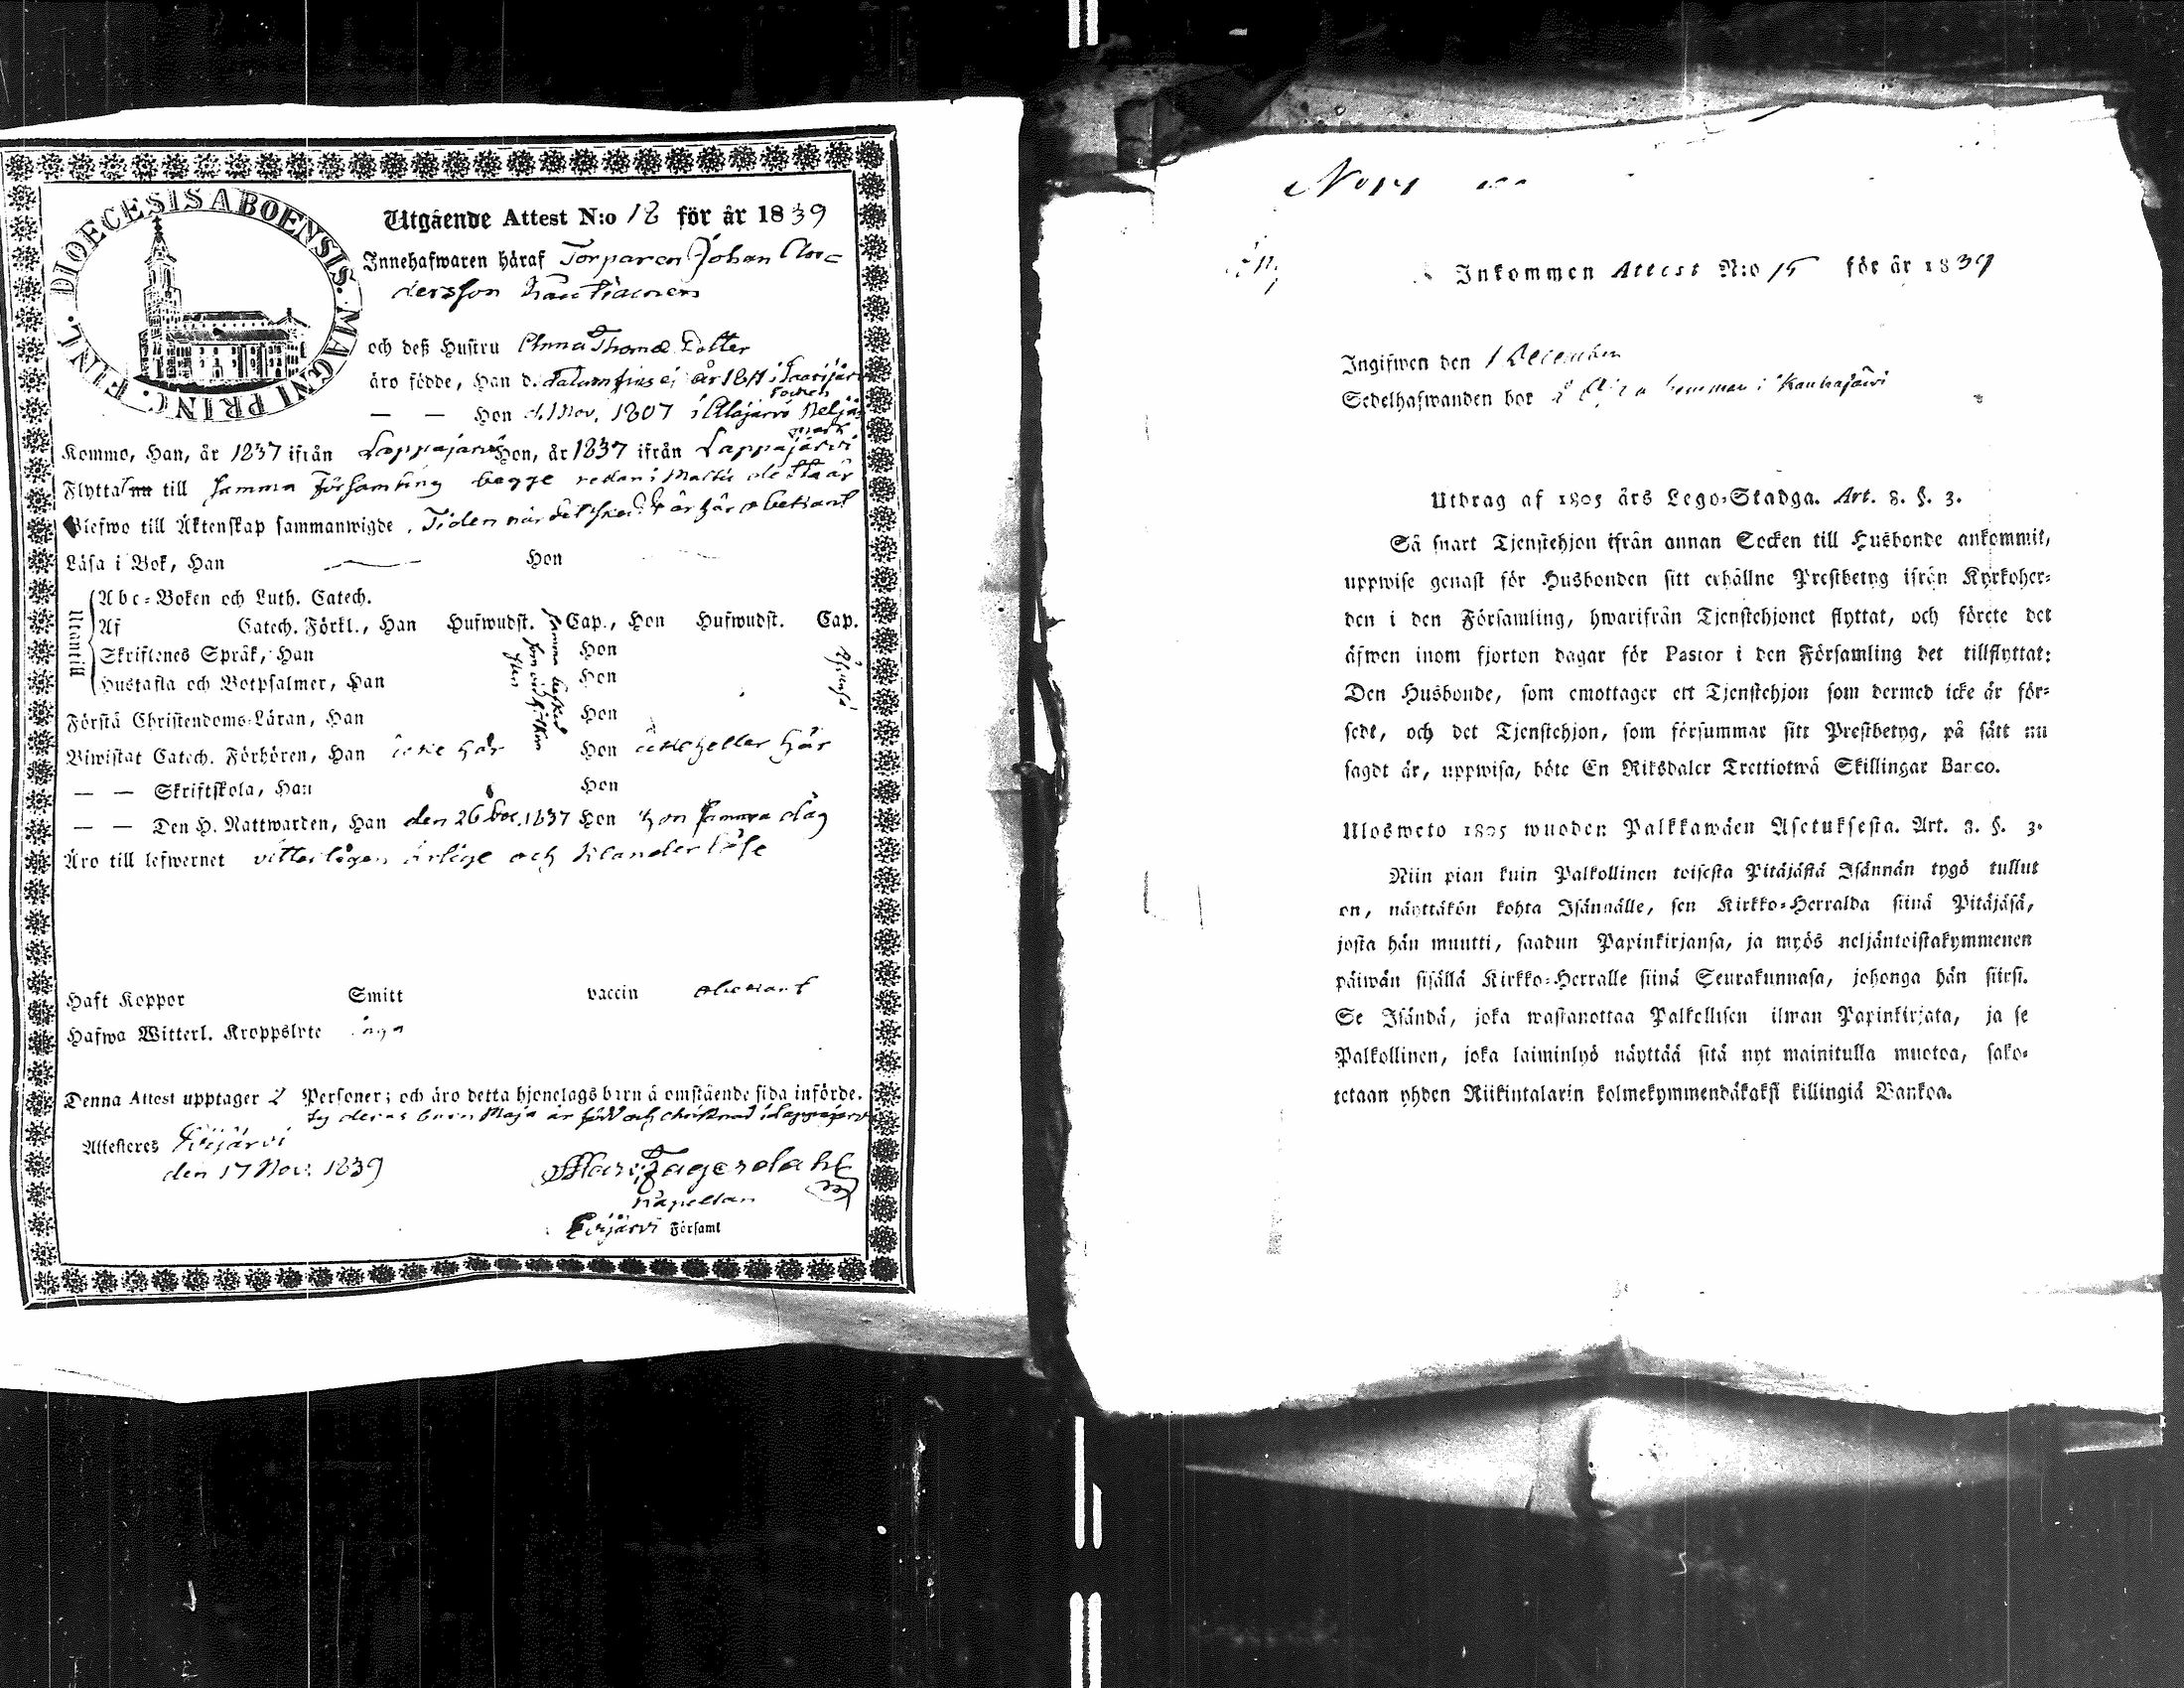 DIOECESIS ABOENSIS. MAGNI PRINC. FINL.
Utgående Attest N:o 18 för år 1839
Innehafwaren häraf Torparen Johan An=
dersson
och deß Hustru Anna Thomæ Dotter
äro födde, Han d. datum fins ej år 1811 i Saarijärvi
Socken
— — Hon d. 1 Nov. 1807 i Alajärvi Neljä=
mark
Kommo, Han, år 1837 ifrån Lappajärvi Hon, år 1837 ifrån Lappajärvi
Flytta till samma Församling begge redan i Martii detta år
Blefwo till Äktenskap sammanwigde. Tiden när det skedt är här obekant
Läsa i Bok, Han — Hon —
Utantill
Abc-Boken och Luth. Catech.
Af Catech. Förkl., Han Hufwudst. Cap., Hon Hufwudst. Cap.
Skriftenes Språk, Han Hon
Hustafla och Botpsalmer, Han Hon
Första Christendoms-Läran, Han Hon
Biwistat Catech. Förhören, Han icke här Hon icke heller här
— — Skriftskola, Han Hon
— — Den H. Nattwarden, Han den 26 Dec. 1837 Hon hon samma dag
Äro till lefwernet vitterligen ärlige och
Haft Koppor Smitt vaccin obekant
Hafwa Witterl. Kroppslyte inga
Denna Attest upptager 2 Personer; och äro detta hjonelags barn å omstående sida införde.
ty deras barn Maja är född och christnad i Lappajärvi
Attesteres Evijärvi
den 17 Nov. 1839
Fagerdahl
Kapellan
Evijärvi Församl
Inkommen Attest N:o 15 för år 1839
Ingifwen den 1 December
Sedelhafwanden bor
Utdrag af 1805 års Lego-Stadga. Art. 8. §. 3.
Så snart Tjenstehjon ifrån annan Socken till Husbonde ankommit,
uppwise genast för Husbonden sitt erhållne Prestbetyg ifrån Kyrkoher=
den i den Församling, hwarifrån Tjenstehjonet flyttat, och förete det
äfwen inom fjorton dagar för Pastor i den Församling det tillflyttat:
Den Husbonde, som emottager ett Tjenstehjon som dermed icke är för=
sedt, och det Tjenstehjon, som försummar sitt Prestbetyg, på sätt nu
sagdt är, uppwisa, böte En Riksdaler Trettiotwå Skillingar Banco.
Ulosweto 1805 wuoden Palkkawäen Asetuksesta. Art. 8. §. 3.
Niin pian kuin Palkollinen toisesta Pitäjästä Isännän tygö tullut
on, näyttäkön kohta Isännälle, sen Kirkko-Herralda siinä Pitäjäsä,
josta hän muutti, saadun Papinkirjansa, ja myös neljäntoistakymmenen
päiwän sisällä Kirkko-Herralle siinä Seurakunnasa, johonga hän siirsi.
Se Isändä, joka wastanottaa Palkollisen ilman Papinkirjata, ja se
Palkollinen, joka laiminlyö näyttää sitä nyt mainitulla muotoa, sako=
tetaan yhden Riikintalarin kolmekymmendäkaksi killingiä Bankoa.